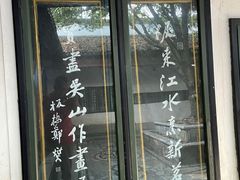 汲來江水烹新
盡吳山作畫
板橋鄭燮